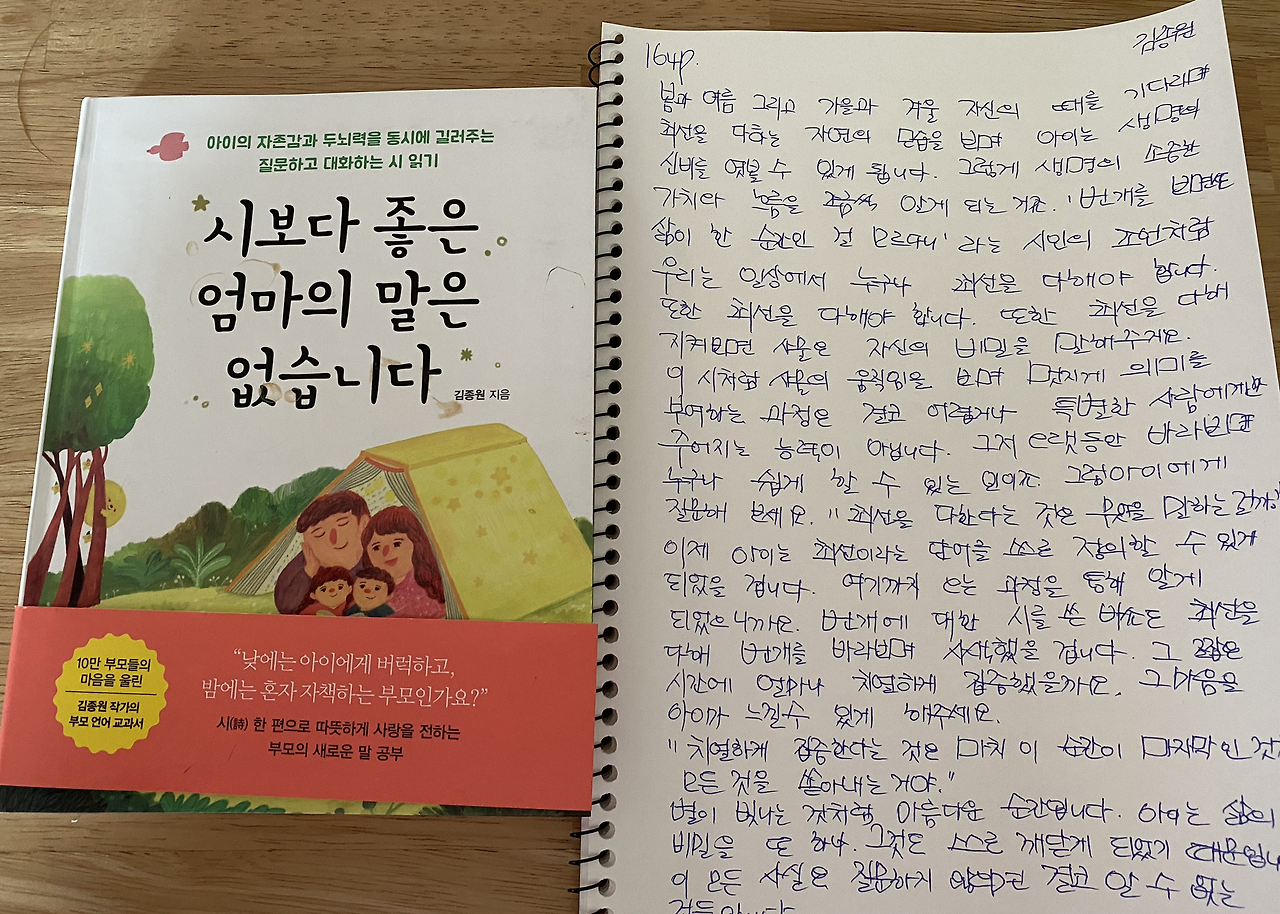 아이의 자존감과 두뇌력을 동시에 길러주는
질문하고 대화하는 시 읽기
시보다 좋은
엄마의 말은
없습니다
김종원 지음
10만 부모들의
마음을 울린
김종원 작가의
부모 언어 교과서
“낮에는 아이에게 버럭하고,
밤에는 혼자 자책하는 부모인가요?”
시(詩) 한 편으로 따뜻하게 사랑을 전하는
부모의 새로운 말 공부
164p.
김종원
봄과 여름 그리고 가을과 겨울 자신의 때를 기다리며
최선을 다하는 자연의 모습을 보며 아이는 생명의
신비를 엿볼 수 있게 됩니다. 그렇게 생명의 소중한
가치와 흐름을 조금씩 알게 되는 거죠. '번개를 보면서도
삶이 한 순간인 걸 모르다니' 라는 시인의 조언처럼
우리는 일상에서 누구나 최선을 다해야 합니다.
또한 최선을 다해야 합니다. 또한 최선을 다해
지켜보면 사물은 자신의 비밀을 말해주지요.
이 시처럼 사물의 움직임을 보며 멋지게 의미를
부여하는 과정은 결코 어렵거나 특별한 사람에게만
주어지는 능력이 아닙니다. 그저 오랫동안 바라보면
누구나 쉽게 할 수 있는 일이죠. 그럼 아이에게
질문해 보세요. "최선을 다한다는 것은 무엇을 말하는 걸까?
이제 아이는 최선이라는 단어를 스스로 정의할 수 있게
되었을 겁니다. 여기까지 오는 과정을 통해 알게
되었으니까요. 번개에 대한 시를 쓴 바쇼도 최선을
다해 번개를 바라보며 사색했을 겁니다. 그 짧은
시간에 얼마나 치열하게 집중했을까요. 그 마음을
아이가 느낄 수 있게 해주세요.
"치열하게 집중한다는 것은 마치 이 순간이 마지막인 것
모든 것을 쏟아내는 거야."
별이 빛나는 것처럼 아름다운 순간입니다. 아이는 삶의
비밀을 또 하나. 그것도 스스로 깨닫게 되었기 때문입니
이 모든 사실은 질문하지 않으면 결코 알 수 없는
것들입니다.